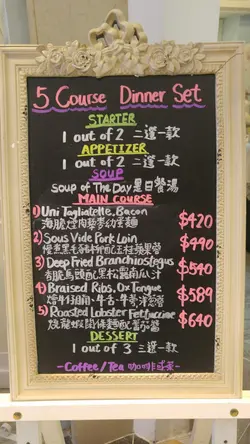 5 Course Dinner Set
STARTER
1 out of 2 二選一款
APPETIZER
1 out of 2 二選一款
SOUP
Soup of The Day 是日餐湯
MAIN COURSE
1) Uni Tagliatelle, Bacon $420
海膽煙肉
2) Sous Vide Pork Loin $490
慢煮黑毛豬
3) Deep Fried Branchiostegus $540
脆馬頭配黑松露南瓜汁
4) Braised Ribs, Ox Tongue $589
牛舌
5) Roasted Lobster Fettuccine $640
燒龍蝦
DESSERT
1 out of 3 三選一款
-Coffee/Tea 咖啡或茶-